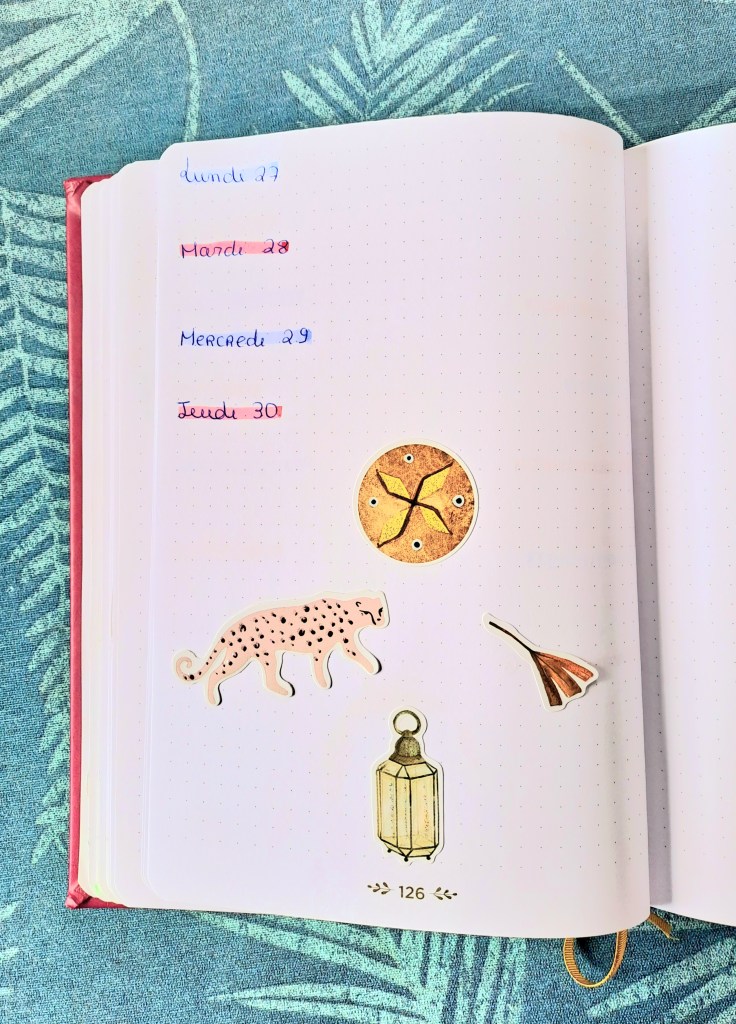 Lundi 27
Mardi 28
Mercredi 29
Jeudi 30
126